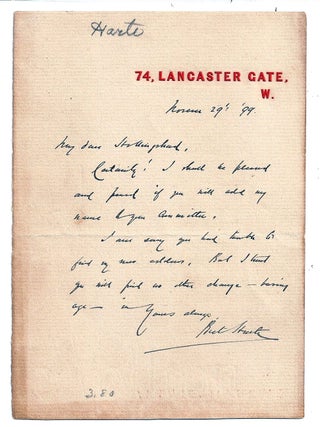 Harte
74, LANCASTER GATE,
W.
29th '99.
My dear Hollingshead,
Certainly! I shall be pleased
and proud if you will add my
name to your Committee.
I am sorry you had trouble to
find my new address. But I trust
you will find no other change — saving
age — in
Yours always
Bret Harte
3.80